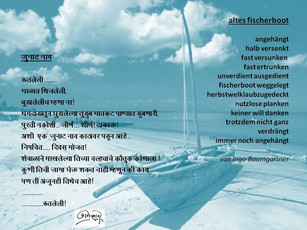 जुनाट नाव
रुतलेली ............
गाळात थिजलेली,
बुडालेलीच म्हणा ना!
पाण्यात पाण्यात दुबणारी,
पुरती नकोशी.. जीर्ण... शीर्ण!
अशी एक जुनाट नाव काठावर पडून आहे..
निपचित...., दिवस मोजत!
शेवाळाने माखलेल्या तिच्या वल्ह्यांचे कौतुक कोणाला!
कुणी तिची जागा घेऊ शकत नाही म्हणून की काय
पण ती अजूनही तिथेच आहे!
............
............रुतलेली!
altes fischerboot
angehängt
halb versenkt
fast versunken
fast ertrunken
unverdient ausgedient
fischerboot weggelegt
herbstweltklaubzugedeckt
nutzlose planken
keiner will danken
trotzdem nicht ganz
verdrängt
immer noch angehängt
von Ingo Baumgartner